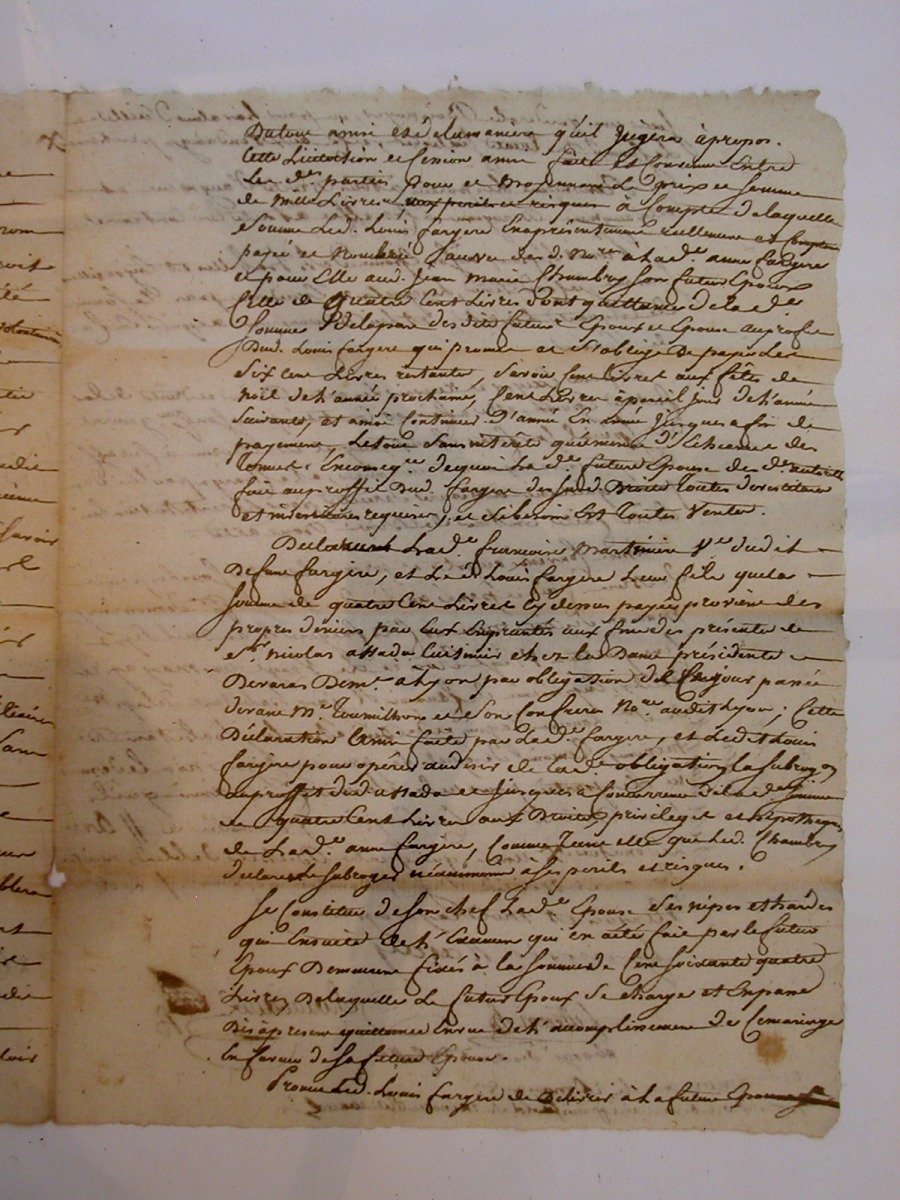 Du tout ainsi et de la maniere qu'il Jugera à propos.
Cette Licitation et Cession ainsi faite et Convenue Entre
Les d.es parties pour et moyennant Le prix et somme
de mille Livres aux perils et risques à Compte de laquelle
Somme Led. Louis fargere En a présentement reellement et
payée et Nombrée Sauve des d. No.res à lad.e anne fargere
et pour Elle aud. Jean Marie Chambry Son futur Epoux
Celle de Quatre Cent Livres dont quittance de lad.e
Somme de la part des dits futur Epoux et Epouse au profit
Dud. Louis fargere qui promet et S'oblige De payer Les
Six Cent Livres restantes, Savoir Cent Livres aux fêtes de
noël de l'année prochaine, Cent Livres à pareil Jour de l'année
Suivante, et ainsi Continuer D'année En année Jusques a fin de
payement, Le tout Sans intérêts qu'en cas d'Echeance des
Termes. En conseq.ce de quoi Lad.e future Epouse
fait au proffit Dud. fargere des susd. Droits Toutes
requises, et
Declarent Lad.e francoise Martiniere V.e dudit
Defunt fargere, et Led. Louis fargere Leur fils que la
Somme de quatre Cent Livres Cy dessus payée provient des
propres deniers par Eux Empruntés aux fins des présentes de
S.r nicolas attada Cuisinier chez la Dame présidente
Devaras Dem.t à Lyon par obligation de Cejourd passée
devant M.e Tournilhon et son Confrere No.re audit Lyon; Cette
Déclaration Ainsi faite par Lad.e fargere, et Ledit Louis
fargere pour opérer au desir de lad.e obligation la Subrog.on
au proffit dud. attada et Jusques à Concurrence de lad.e Somme
de quatre Cent Livres aux Droits, privileges et hypotheques
de Lad.e anne fargere, Comme Icelle que Led. Chambry
declarent Subroger néanmoins à Ses perils et risques.
Se Constitue de Son chef Lad.e Epouse Ses nipes et hardes
qui Ensuite de l'Examen qui en a été fait par le futur
Epoux Demeurent fixés à la Somme de Cent soixante quatre
Livres De laquelle Le futur Epoux Se charge et En passe
Dès àpresent quittance En vue de l'accomplissement de Ce mariage
En faveur de Sa future Epouse.
Promet Led. Louis fargere de Délivrer à la future Epouse